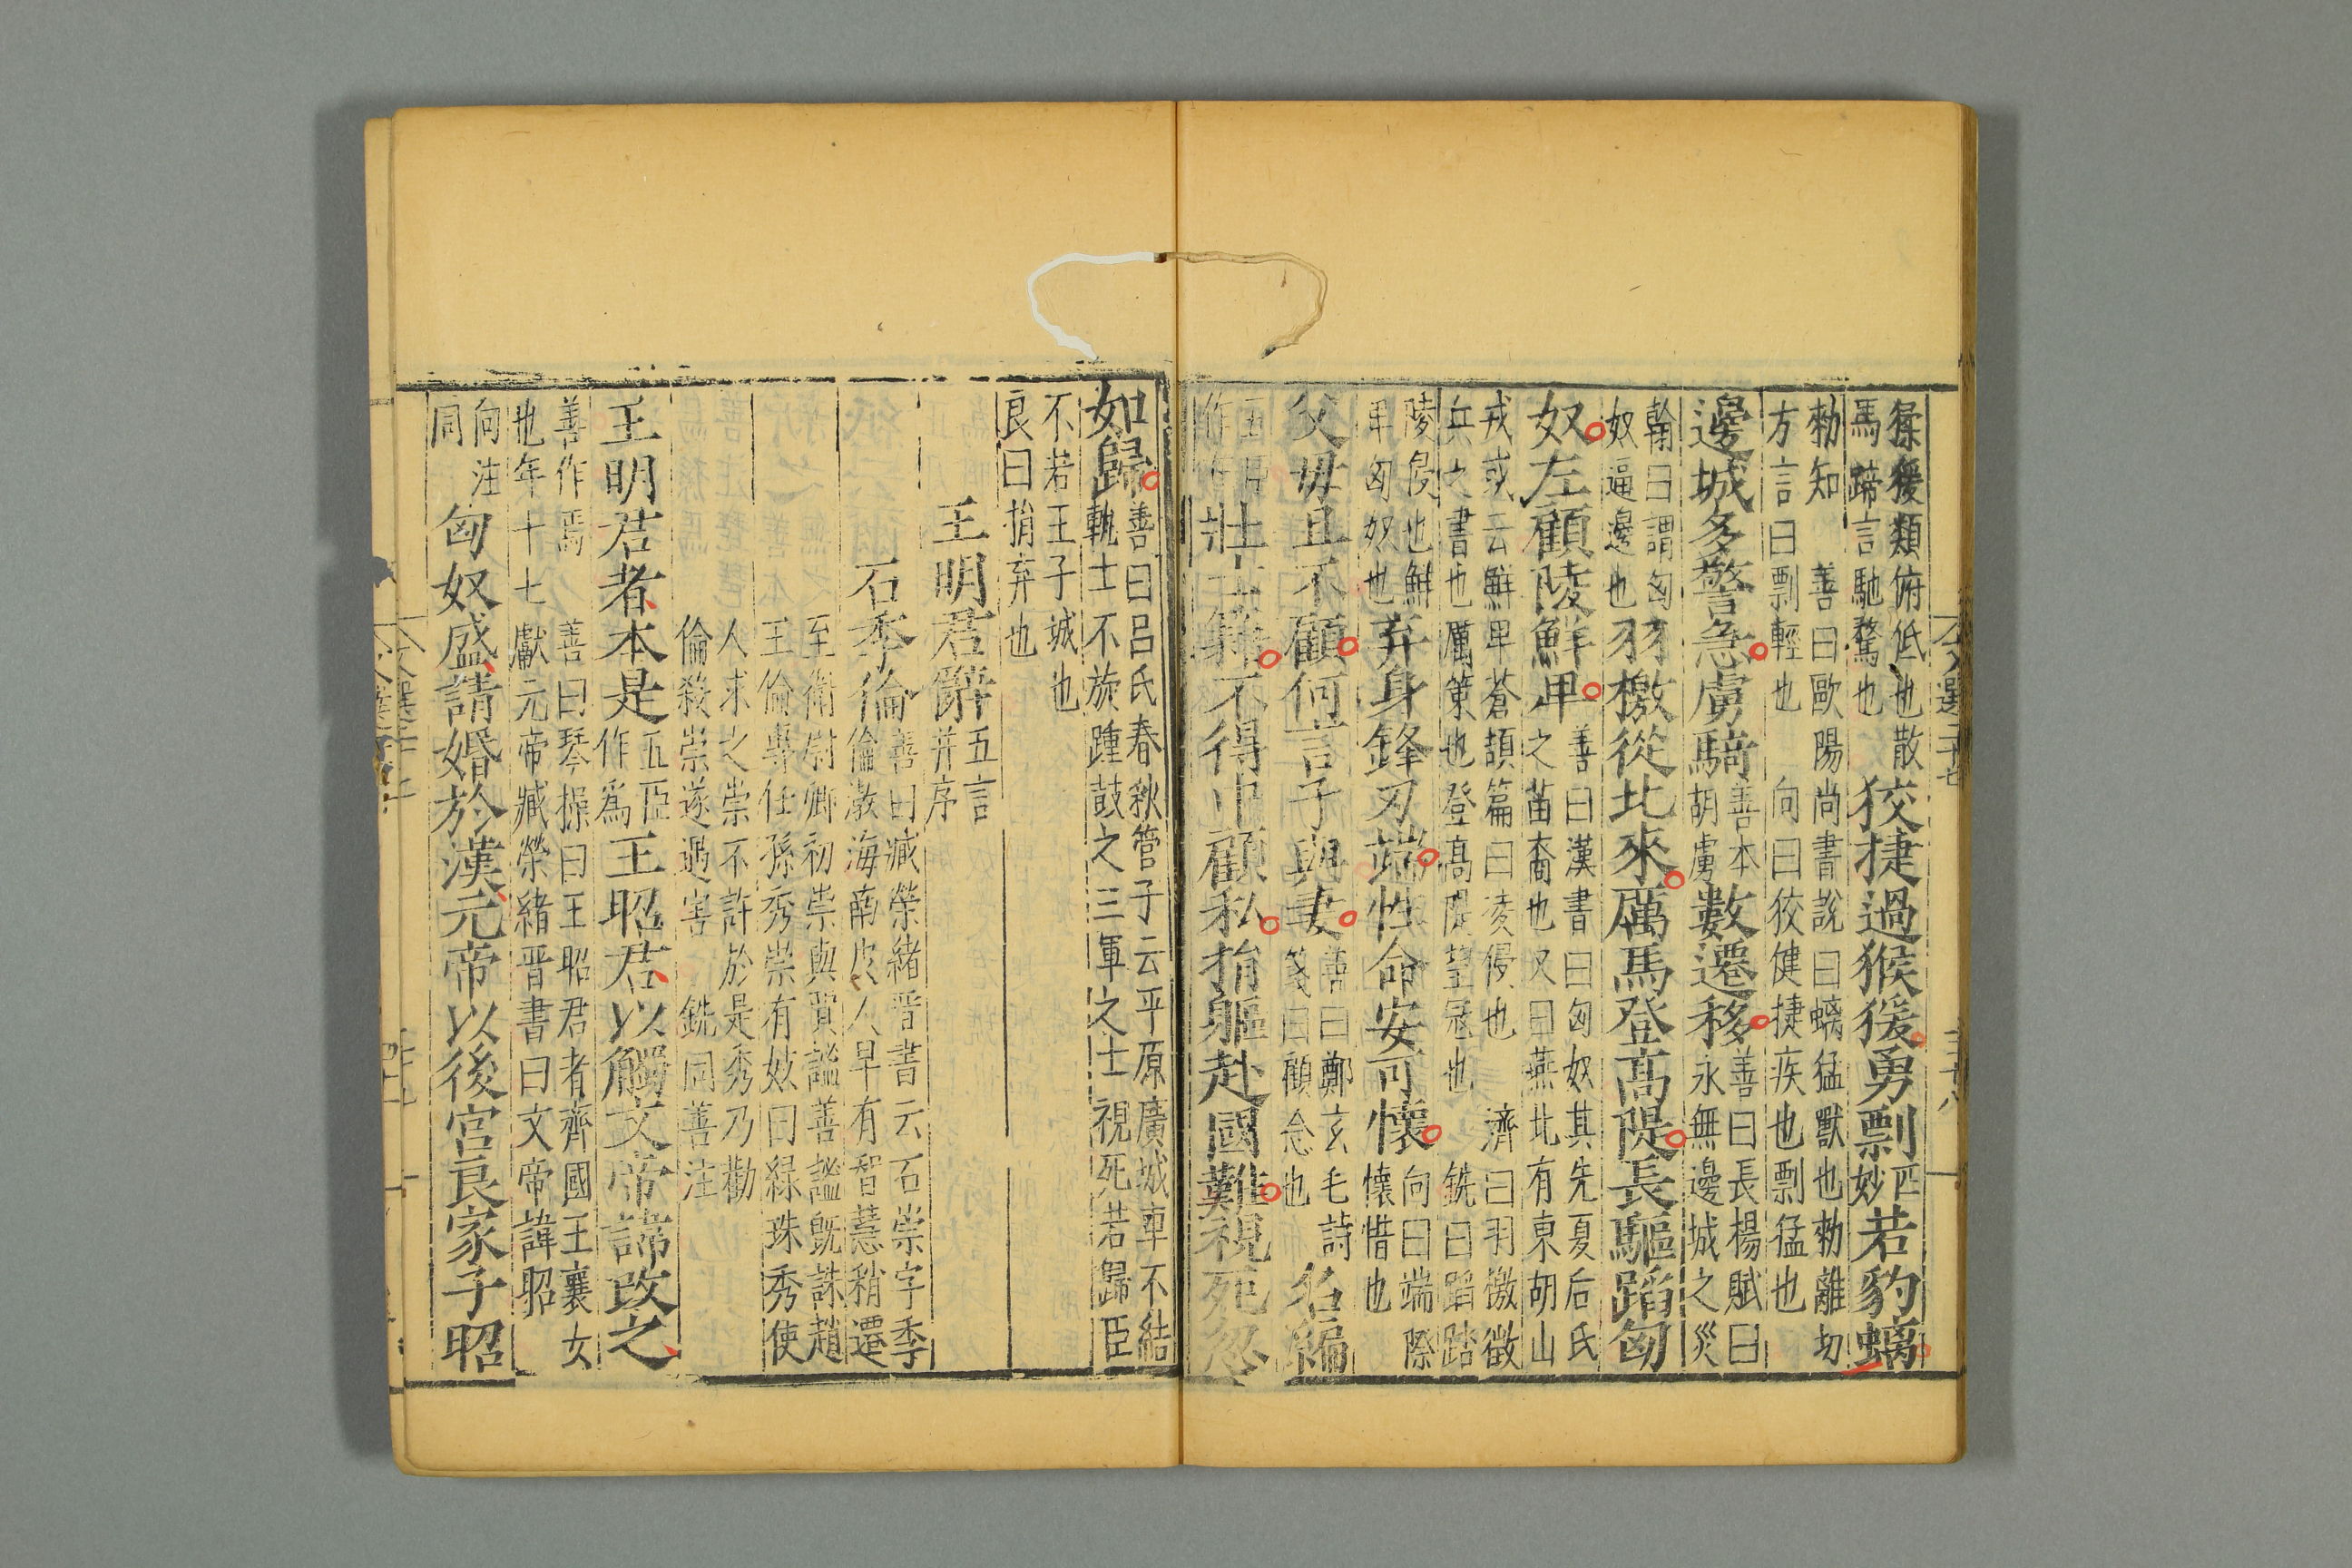 猱猨類俯低也散
馬蹄言馳騖也
狡捷過猴猨勇剽
匹妙
若豹螭
勑知　善曰歐陽尚書說曰螭猛獸也勑離切
方言曰剽輕也　向曰狡健捷疾也剽猛也
邊城多警急虜騎
善本胡虜
數遷移
善曰長楊賦曰
永無邊城之災
翰曰謂匈
奴逼邊也
羽檄從北來厲馬登高隄長驅蹈匈
奴左顧陵鮮卑
善曰漢書曰匈奴其先夏后氏
之苗裔也又曰燕北有東胡山
戎或云鮮卑蒼頡篇曰凌侵也　濟曰羽檄徵
兵之書也厲策也登高隄望冦也　銑曰蹈踏
陵侵也鮮
卑匈奴也
弃身鋒刃端性命安可懷
向曰端際
懷惜也
父母且不顧何言子與妻
善曰鄭玄毛詩
箋曰顧念也
名編
五臣
作在
壯士籍不得中顧私捐軀赴國難視死忽
如歸
善曰吕氏春秋管子云平原廣城車不結
軌士不旋踵鼓之三軍之士視死若歸臣
不若王子城也
良曰捐弃也
王明君辭
五言
并序
石季倫
善曰臧榮緒晋書云石崇字季
倫渤海南皮人早有智慧稍遷
至衛尉卿初崇與賈謐善謐旣誅趙
王倫專任孫秀崇有妓曰緑珠秀使
人求之崇不許於是秀乃勸
倫殺崇遂遇害　銑同善注
王明君者本是
五臣
作爲
王昭君以觸文帝諱改之
善作焉　善曰琴操曰王昭君者齊國王襄女
也年十七獻元帝臧榮緒晋書曰文帝諱昭
向注
同
匈奴盛請婚於漢元帝以後宫良家子昭